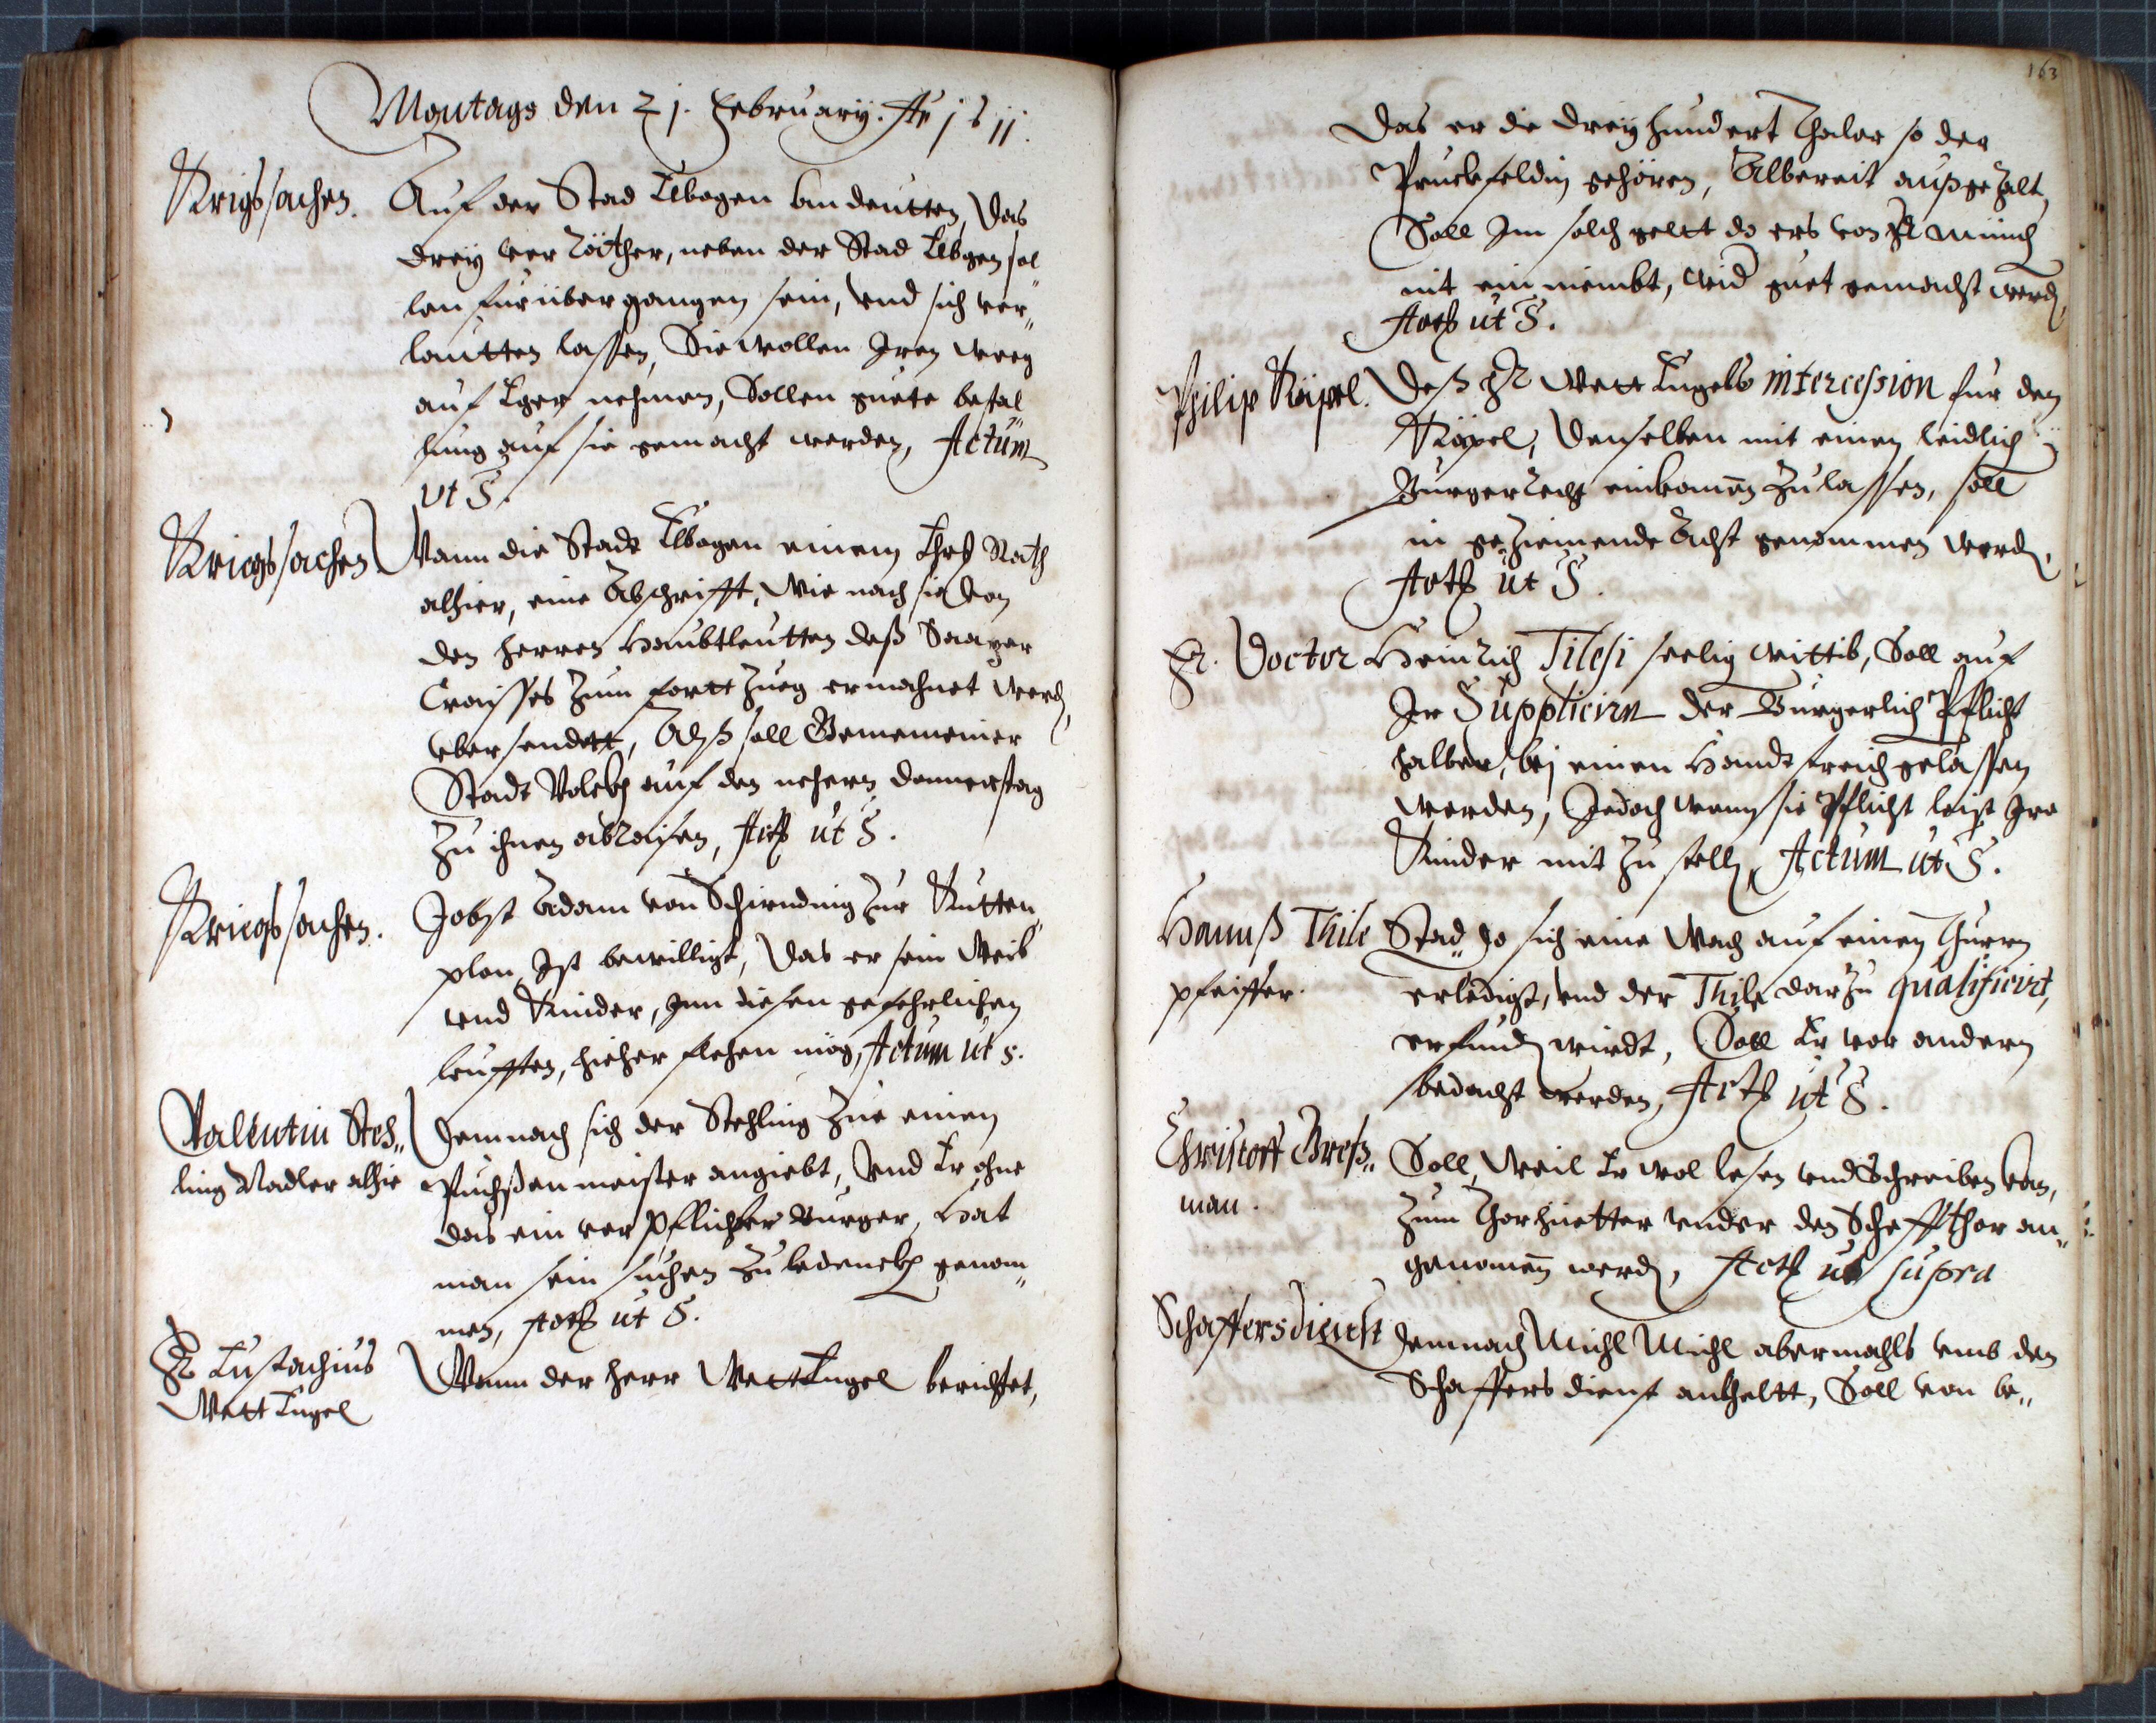 Montags den 21. February. Ao 1611.
Krigssachen.
Auf der Stad Elbogen andeutten, das
drey verräther, neben der Stad Elbogen sol„
len fürüber gangen sein, vnd sich ver„
lautten lassen, Sie wollen Iren weeg
auf Eger nehmen, Sollen guete bestal„
lung auf sie gemacht werden, Actum
vt S.
Kriegssachen
Wann die Stadt Elbogen einem Ehrs Rath
alhier, eine Abschrifft, wie nach sie von
den herren Haubtleutten deß Saazer
Craisses zum fortzueg ermahnet werd,
vbersendett, Alß soll Gemeiner
Stadt Volckh auf den nehern donnerstag
zu ihnen abraisen, Acts ut S.
Kriegssachen.
Jobst Adam von Schirnding zur Kutten„
plan, Ist bewilligt, das er sein Weib
vnd Kinder, Inn diesen gefehrlichen
leufften, hieher flehen mög, Actum ut s.
Valentin Steh„
ling Nadler alhie
Demnach sich der Stehling zue einen
Püchßenmeister angiebt, Vnd Er ohne
das ein verpflichter Burger, Hat
man sein suchen zu bedenckh genom„
men, Acts ut S.
Hr Eustachius
Wett Engel
Wann der herr WettEngel berichtet,
163
Das er die dreyhundert Thaler so der
Pruckfeldin gehören, Albereit außgezalt,
Soll Im solch geltt do ers von Hr Münch
nit ein nimbt, wid guet gemacht werd,
Acts ut S.
Philip Röpel.
Deß Hr WettEngels intercession für den
Röpel, denselben mit einen leidlich
Burgerrecht einkomen zulassen, soll
in geziemende Acht genommen werd,
Acts ut S.
Hr. Doctor Heinrich Tilesi seelig wittib, Soll auf
Ir Supplicirn der Burgerlich Pflicht
halber, bej einen Handtstreich gelassen
werden, Jedoch wenn sie Pflicht leist Ire
Kinder mit zu stelln, Actum ut S.
Hannß Thile
pfeiffer.
Stad, So sich eine Wach auf einen Thurrn
erledigt, vnd der Thile darzu qualificirt,
erfund wirdt, Soll Er vor andern
bedacht werden, Acts ut S.
Christoff Greß„
man.
Soll, Weil Er wol lesen vnd Schreiben kan,
Zum Thorhuetter vnder den Schiffthor an„
genomen werd, Acts ut supra
Schaffersdienst
Demnach Michl Michl abermahls vmb den
Schaffersdienst anheltt, Soll von be„